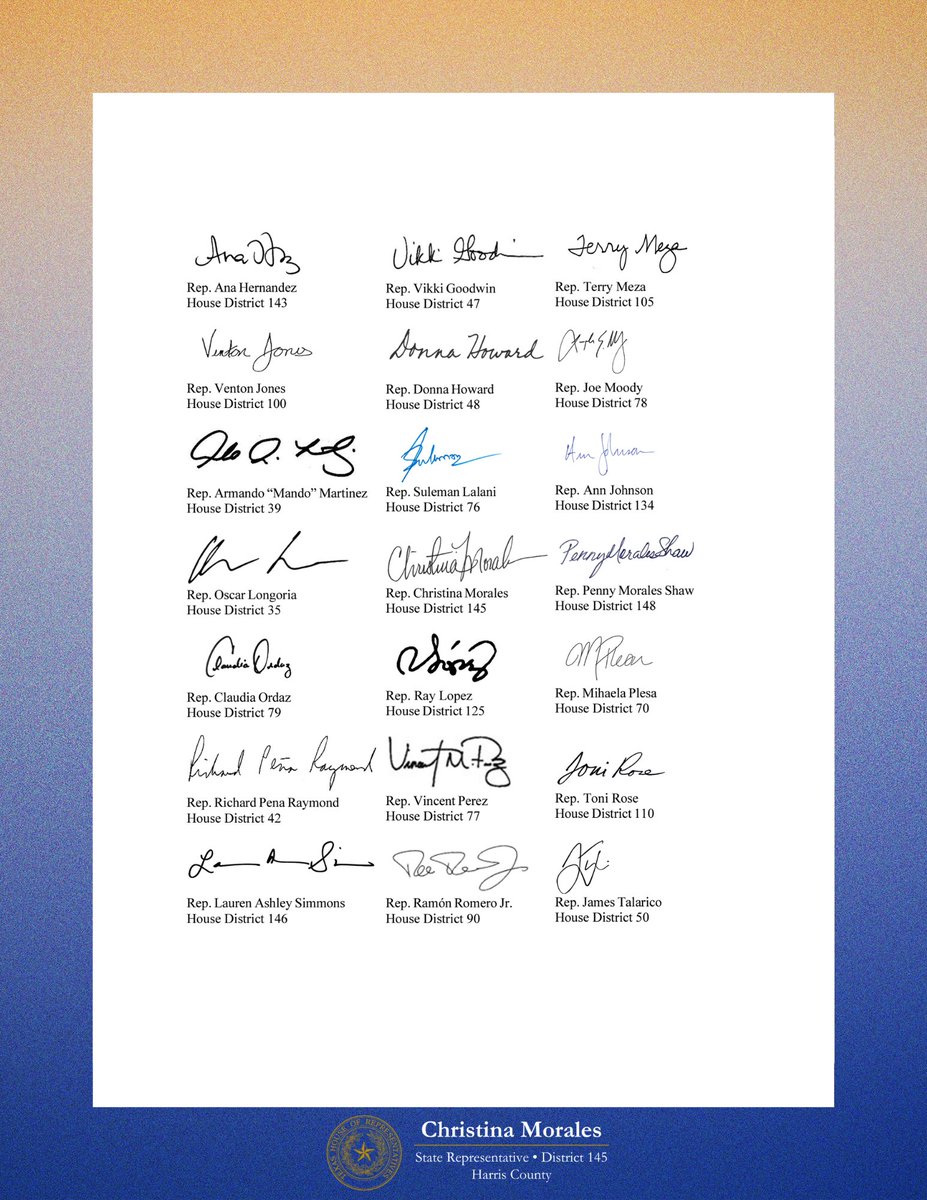 Ana Hdz
Vikki Goodwin
Terry Meza
Rep. Ana Hernandez
House District 143
Rep. Vikki Goodwin
House District 47
Rep. Terry Meza
House District 105
Venton Jones
Donna Howard
Rep. Venton Jones
House District 100
Rep. Donna Howard
House District 48
Rep. Joe Moody
House District 78
Ann Johnson
Rep. Armando “Mando” Martinez
House District 39
Rep. Suleman Lalani
House District 76
Rep. Ann Johnson
House District 134
Christina Morales
Penny Morales Shaw
Rep. Oscar Longoria
House District 35
Rep. Christina Morales
House District 145
Rep. Penny Morales Shaw
House District 148
Claudia Ordaz
Rep. Claudia Ordaz
House District 79
Rep. Ray Lopez
House District 125
Rep. Mihaela Plesa
House District 70
Richard Peña Raymond
Vincent M. Perez
Toni Rose
Rep. Richard Pena Raymond
House District 42
Rep. Vincent Perez
House District 77
Rep. Toni Rose
House District 110
Rep. Lauren Ashley Simmons
House District 146
Rep. Ramón Romero Jr.
House District 90
Rep. James Talarico
House District 50
TEXAS HOUSE OF REPRESENTATIVES
Christina Morales
State Representative • District 145
Harris County